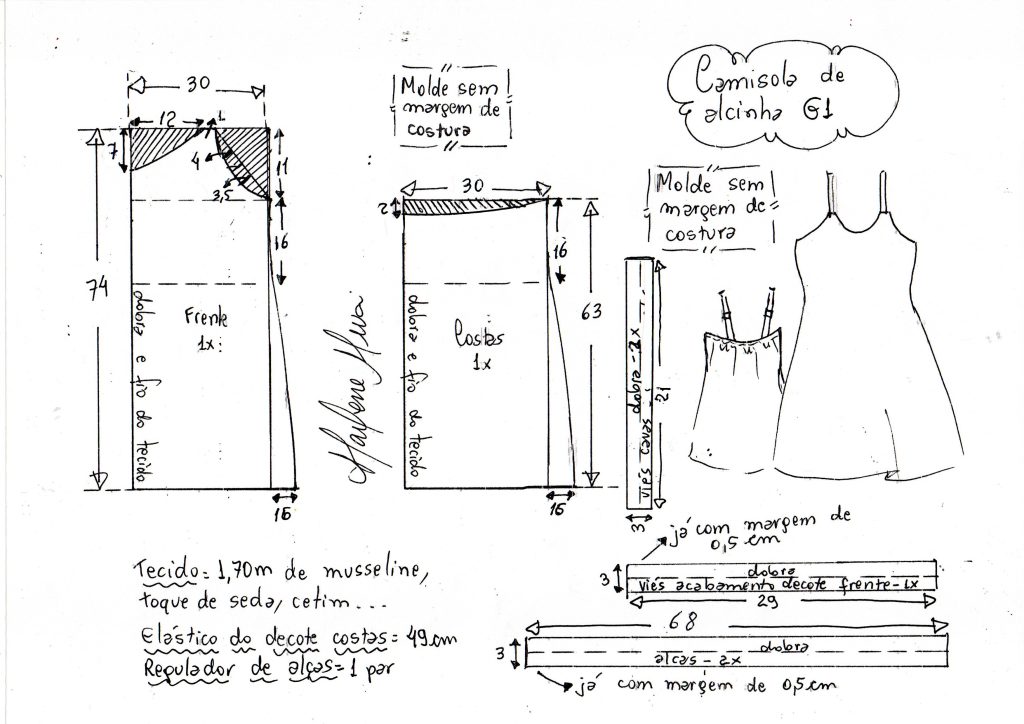 Camisola de
alcinha G1
Molde sem
margem de
costura
Molde sem
margem de
costura
30
12
1
7
4
3,5
11
16
74
Frente
1x
dobra e fio do tecido
16
30
2
16
63
Costas
1x
dobra e fio do tecido
16
Marlene
dobra - 2x
viés cavas
21
3
já com margem de
0,5 cm
3
dobra
viés acabamento decote frente - 1x
29
68
3
dobra
alças - 2x
já com margem de 0,5 cm
Tecido = 1,70m de musseline,
toque de seda, cetim...
Elástico do decote costas = 49cm
Regulador de alças = 1 par